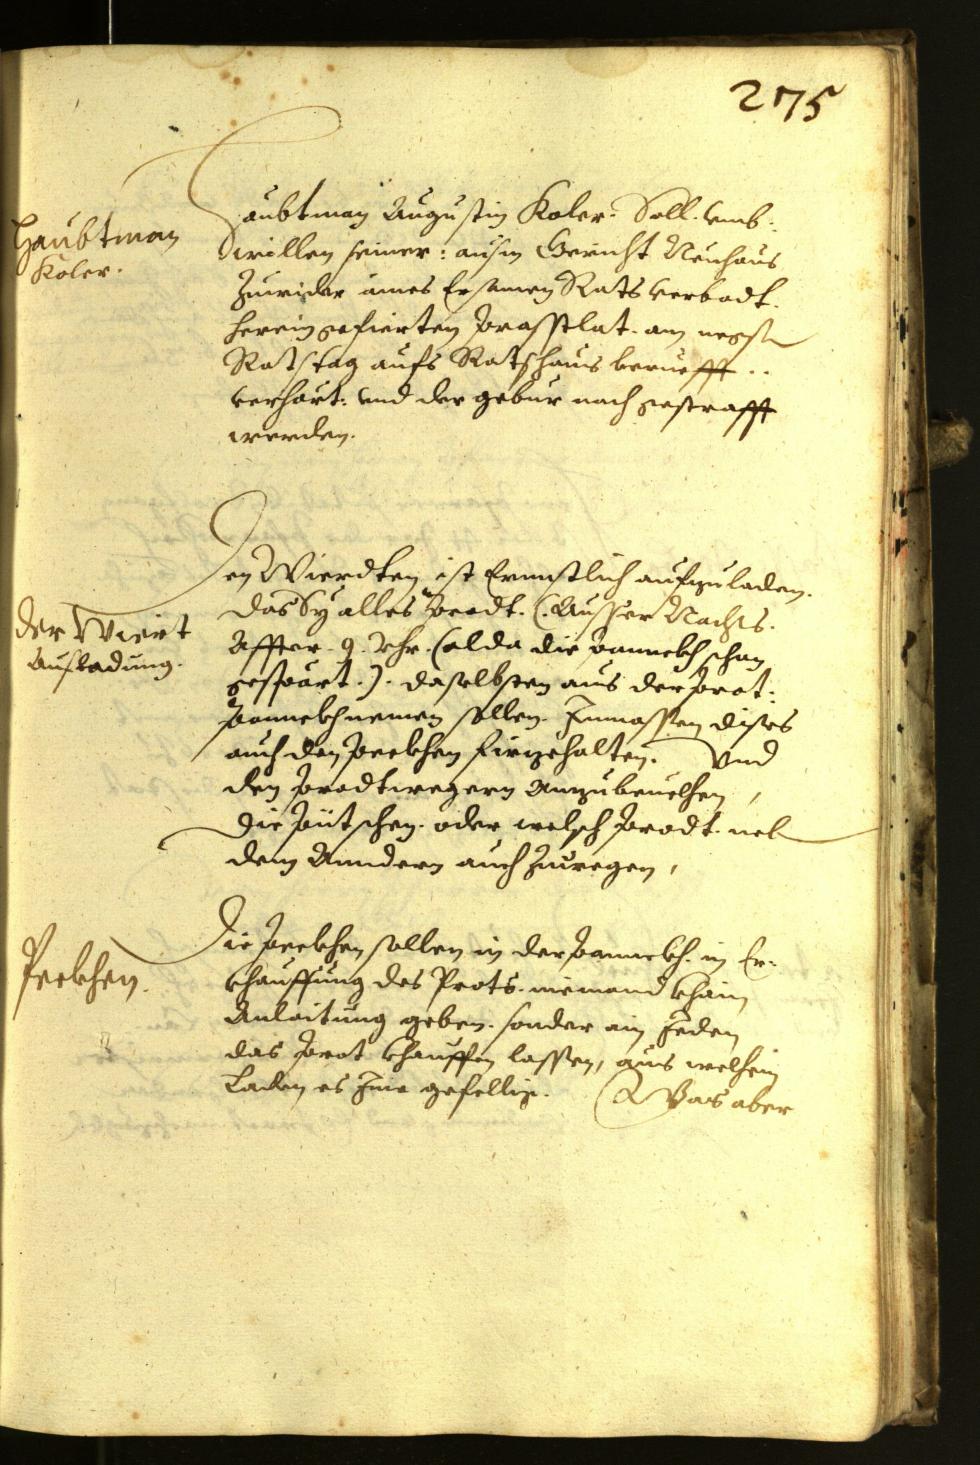 275
Haubtman
Koler.
Haubtman Augustin Koler. Soll. umb.
willen seiner: ausm Gericht Neuhaus
Zuwider aines Ersamen Rats verbodt.
hereingefierten am negsten
Ratstag aufs Ratshaus beruefft..
verhört: und der gebür nach gestrafft
werden.
Der Wiert
Aufladung.
Den Wierdten ist Ernnstlich aufzuladen.
das Sy alles Prodt. (:Ausser Nachts.
Affter. 9. Uhr. (alda die Pannckh schon
gespört.). daselbsten aus der Prot:
Pannckh nemen sollen. Inmassen dises
auch den Peckhen firgehalten. Und
den Prodtwegern Anzubeuelhen,
die Pütschen. oder welsch Prodt. neb
dem Anndern auch Zuwegen,
Peckhen.
Die Peckhen sollen in der Pannckh. in Er-
khauffung des Prots. niemand khain
Anlaitung geben. sonder ain Jeden
das Prot khauffen lassen, aus welhem
Laden es Ime gefellig. Was aber